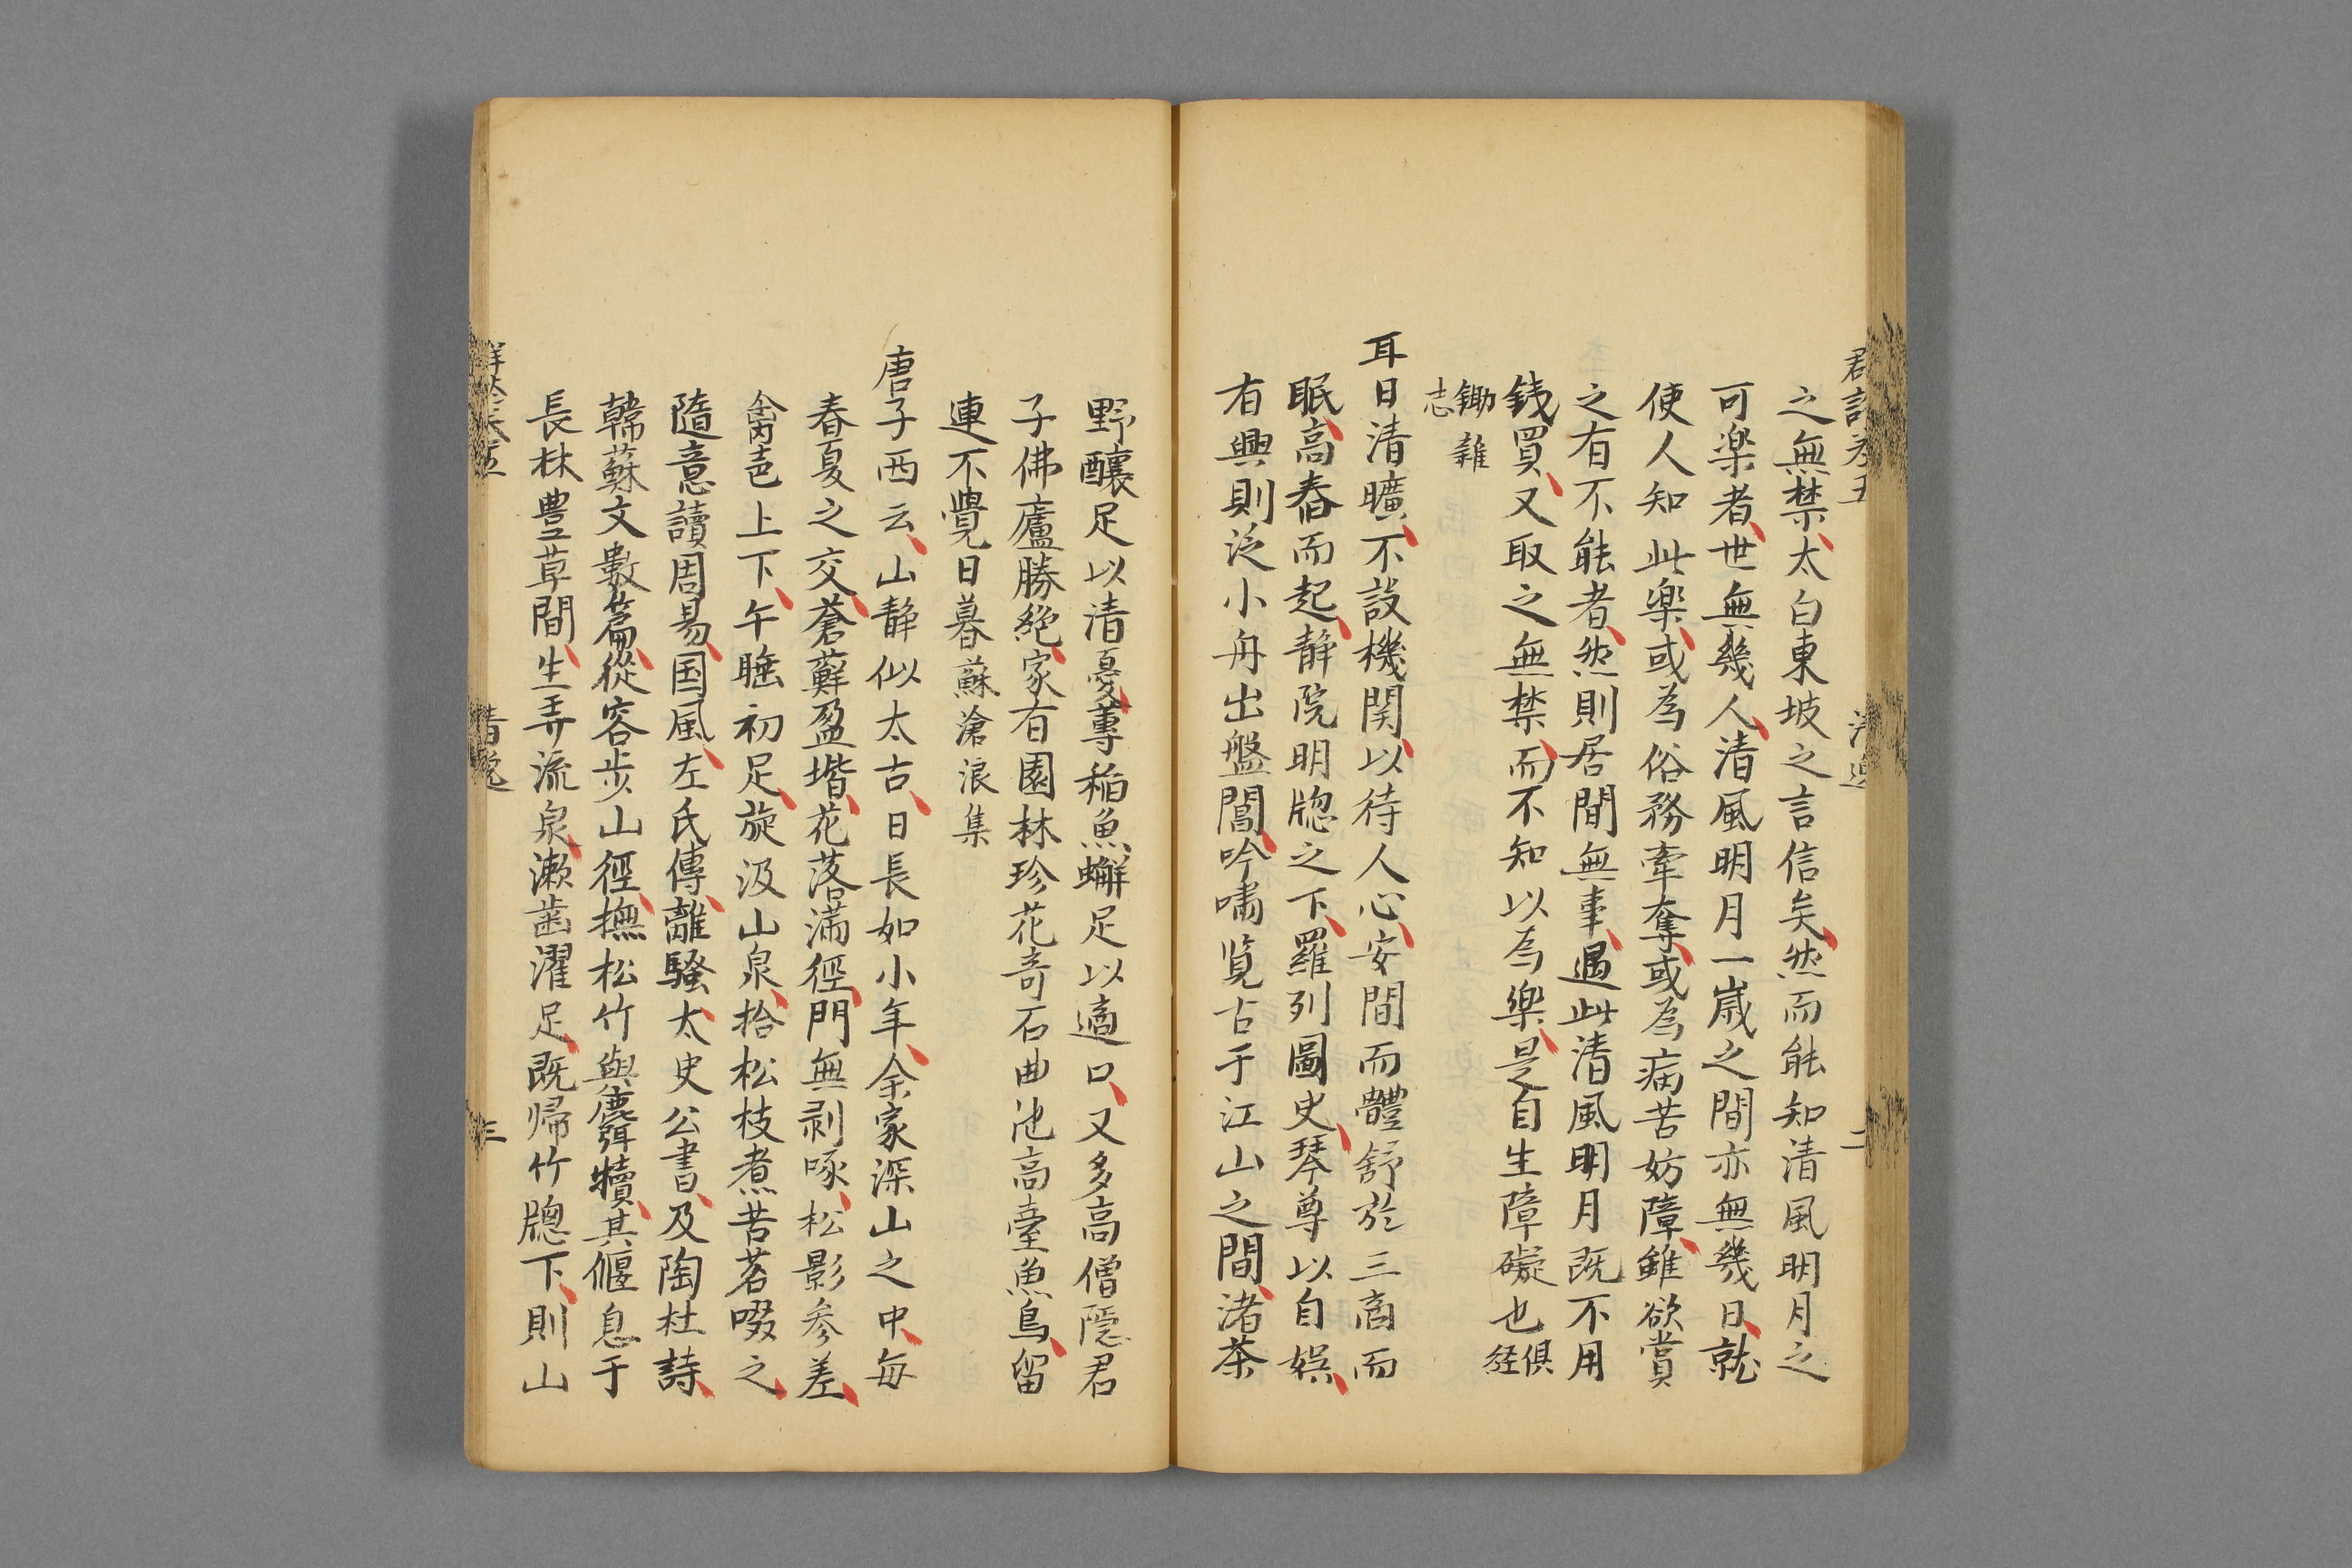 之無禁太白東坡之言信矣然而能知清風明月之
可楽者世無幾人清風明月一歳之間亦無幾日就
使人知此楽或為俗務牽奪或為病苦妨障雖欲賞
之有不能者然則居間無事遇此清風明月既不用
銭買又取之無禁而不知以為楽是自生障礙也俱経
鋤雜志
耳日清曠不設機関以待人心安間而體舒於三商而
眠高舂而起静院明牎之下羅列圖史琴尊以自娯
有興則泛小舟出盤閶吟嘯覧古于江山之間渚茶
野釀足以清憂蓴稲魚蠏足以適口又多高僧隠君
子佛廬勝絶家有園林珍花奇石曲池高臺魚鳥留
連不覺日暮蘇滄浪集
唐子西云山静似太古日長如小年余家深山之中毎
春夏之交蒼蘚盈堦花落満徑門無剥啄松影参差
禽声上下午睡初足旋汲山泉拾松枝煮苦茗啜之
隨意讀周易国風左氏傳離騒太史公書及陶杜詩
韓蘇文數篇從容歩山徑撫松竹與麛犢其偃息于
長林豊草間坐弄流泉漱歯濯足既帰竹牎下則山
三